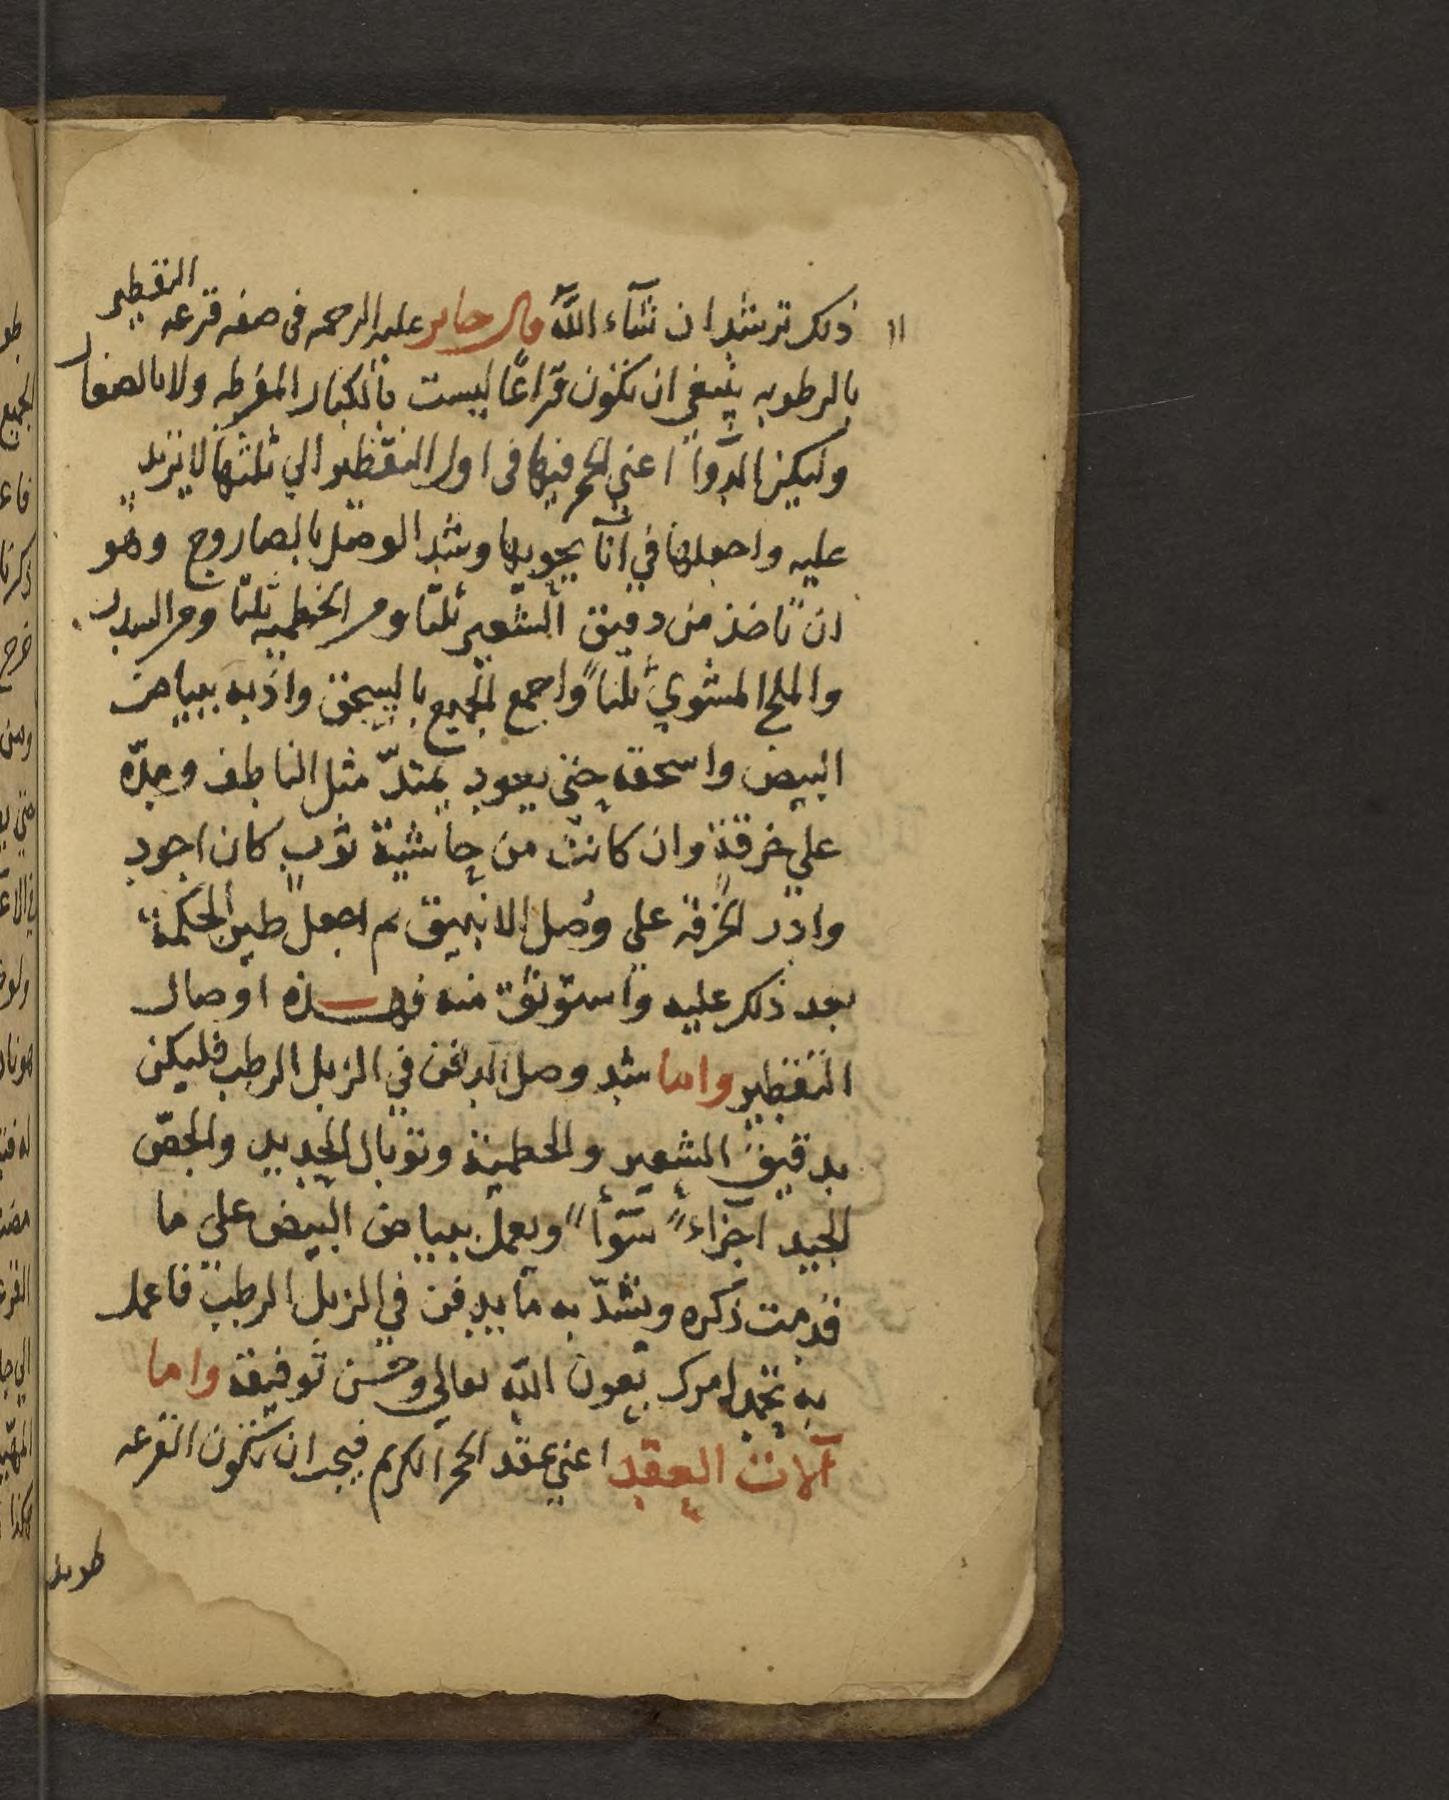 ذلك ترشد ان شآء اللّه قال جابر عليه الرحمه فى صفه قرعه التقطير
بالرطوبه ينبغي ان تكون قراعًا ليست بالكبار المفرطه ولا بالصغار
وليكن الدوآ اعني الحجر فيها فى اول التقطير الي ثلثها لا يزيد
عليه واجعلها في انآ يحويها وشد الوصل بالصاروج وهو
ان تاخذ من دقيق الشعير ثلثا ومن الخطميه ثلثا ومن السدر
والملح المشوي ثلثاً واجمع الجميع بالسحق واذبه ببياض
البيض واسحقه حتي يعود يمتدّ مثل الناطف ومدّه
علي خرقة وان كانت من حاشية ثوب كان اجود
وادر الخرقه على وصل الانبيق ثم اجعل طين الحكمة
بعد ذلك عليه واستوثق منه فهذه اوصال
التقطير واما شد وصل الدفن في الزبل الرطب فليكن
بدقيق الشعير والخطمية وتوبال الحديد والجصّ
الجيد اجزاءً سوآً ويعمل ببياض البيض على ما
قدمت ذكره ونشدّ به ما يدفن في الزبل الرطب فاعمل
به تحمد امرك بعون اللّه تعالي وحسن توفيقه واما
آلات العقد اعني عقد الحجر الكريم فيجب ان تكون القرعه